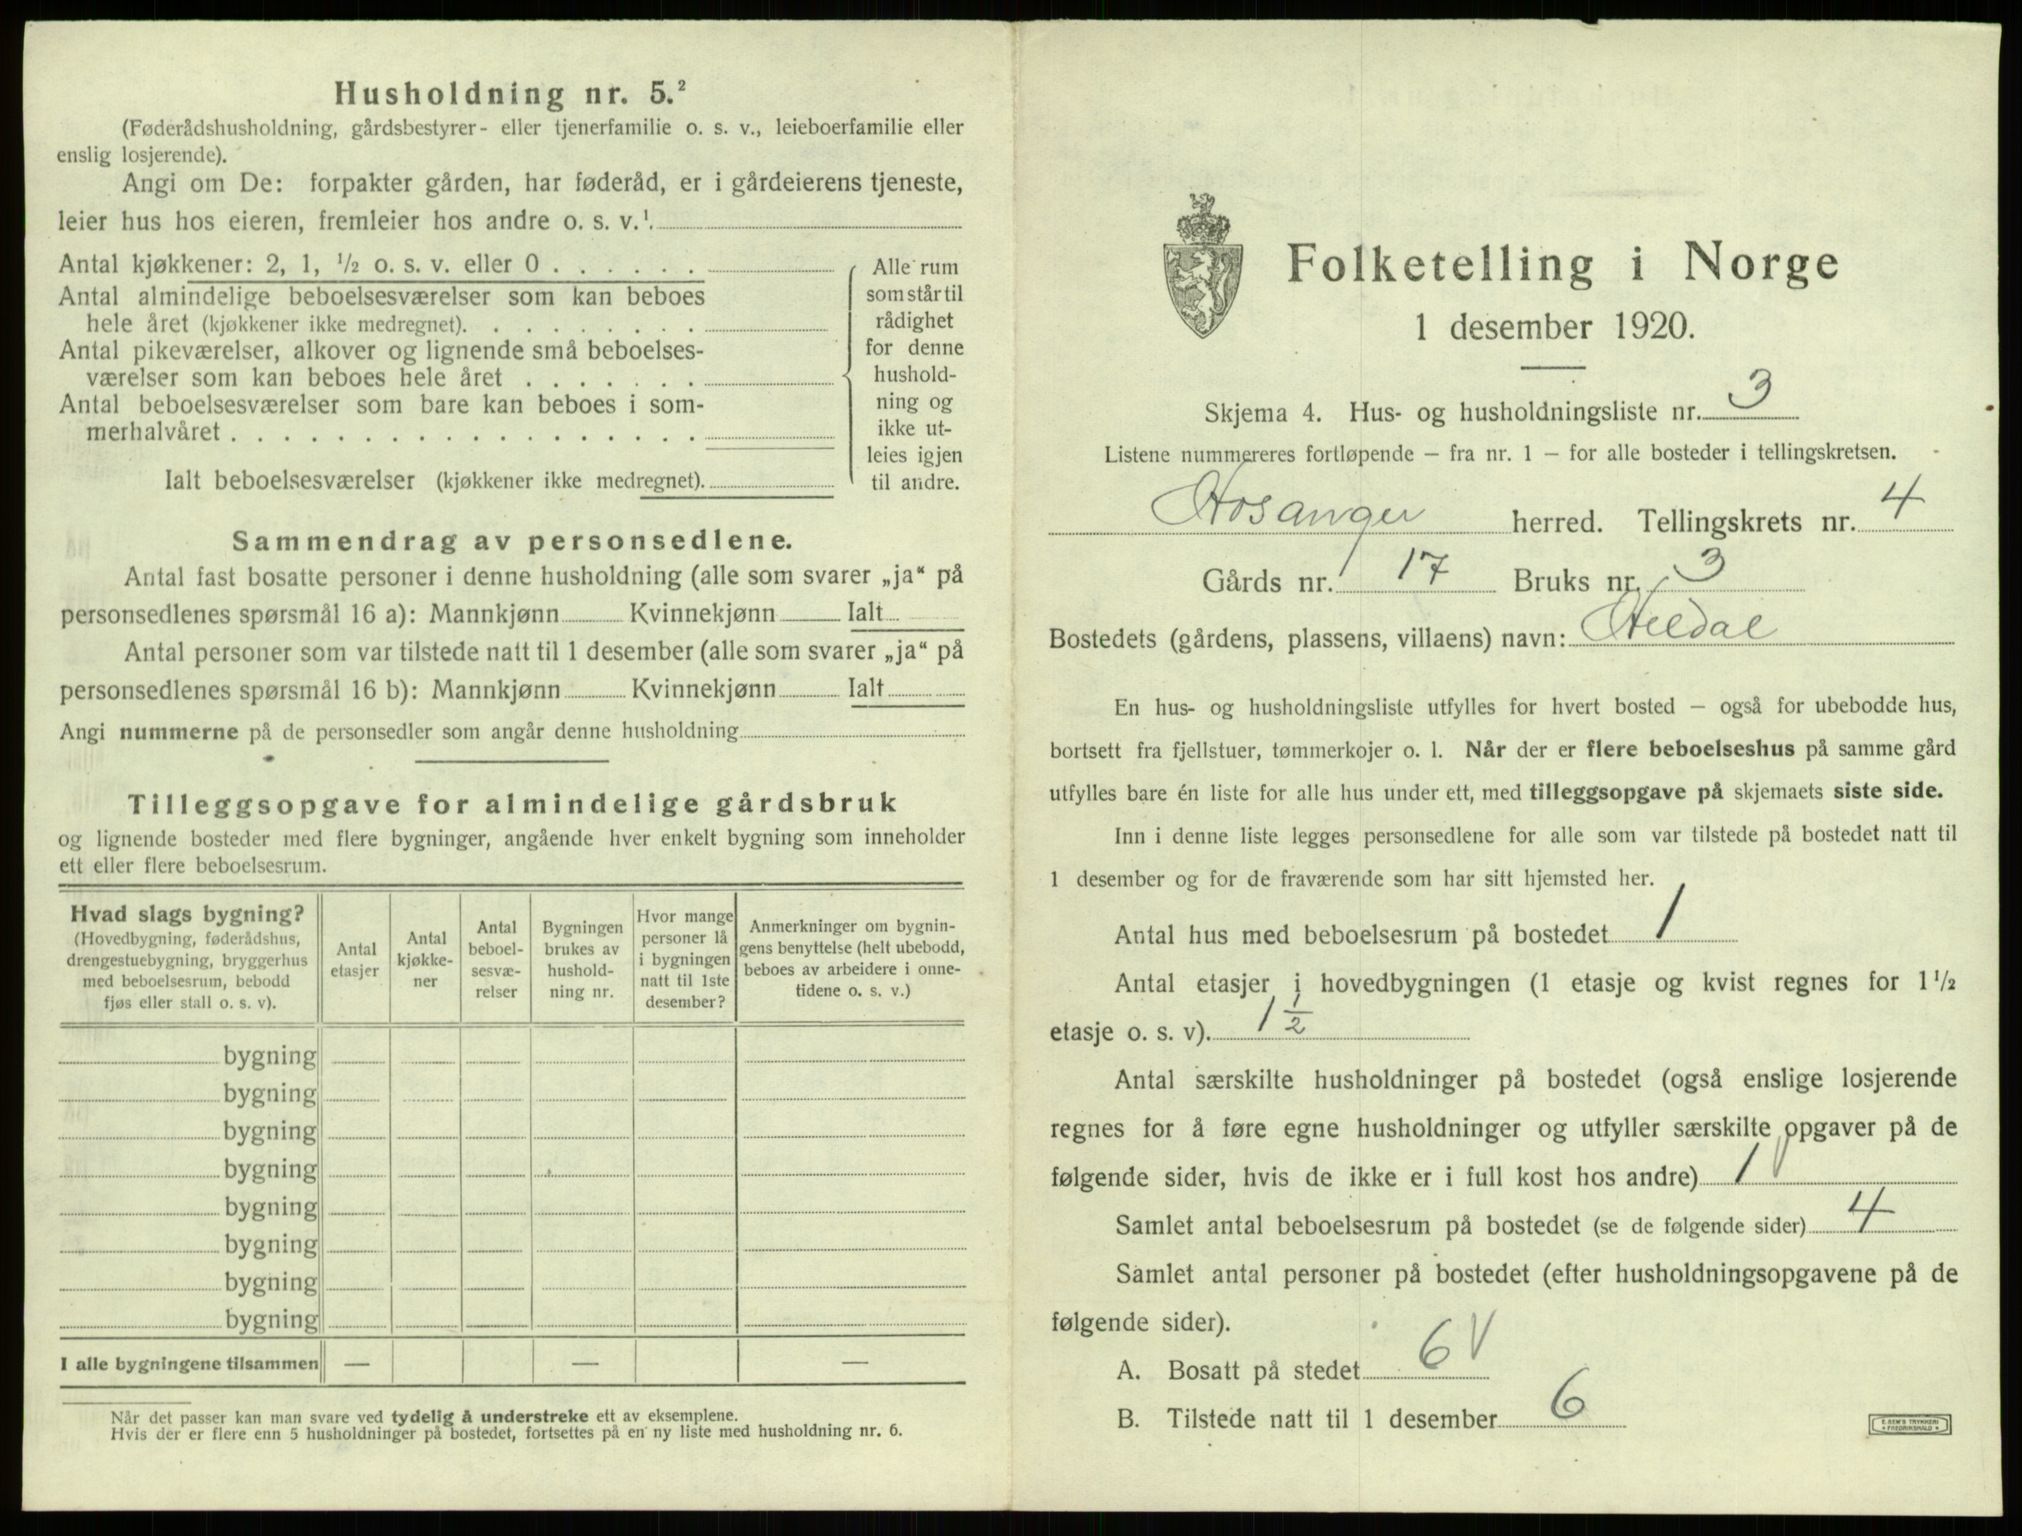 Husholdning nr. 5.²
(Føderådshusholdning, gårdsbestyrer- eller tjenerfamilie o. s. v., leieboerfamilie eller
enslig losjerende).
Angi om De: forpakter gården, har føderåd, er i gårdeierens tjeneste,
leier hus hos eieren, fremleier hos andre o. s. v.¹
Antal kjøkkener: 2, 1, ½ o. s. v. eller 0 . . . . . .
Antal almindelige beboelsesværelser som kan beboes
hele året (kjøkkener ikke medregnet). . . . . . . . .
Antal pikeværelser, alkover og lignende små beboelses-
værelser som kan beboes hele året . . . . . . .
Antal beboelsesværelser som bare kan beboes i som-
merhalvåret . . . . . . . . . . . . . . . . . .
Ialt beboelsesværelser (kjøkkener ikke medregnet).
Alle rum
som står til
rådighet
for denne
hushold-
ning og
ikke ut-
leies igjen
til andre.
Sammendrag av personsedlene.
Antal fast bosatte personer i denne husholdning (alle som svarer „ja“ på
personsedlenes spørsmål 16 a): Mannkjønn Kvinnekjønn Ialt
Antal personer som var tilstede natt til 1 desember (alle som svarer „ja“ på
personsedlenes spørsmål 16 b): Mannkjønn Kvinnekjønn Ialt
Angi nummerne på de personsedler som angår denne husholdning
Tilleggsopgave for almindelige gårdsbruk
og lignende bosteder med flere bygninger, angående hver enkelt bygning som inneholder
ett eller flere beboelsesrum.
Hvad slags bygning?
(Hovedbygning, føderådshus,
drengestuebygning, bryggerhus
med beboelsesrum, bebodd
fjøs eller stall o. s. v).
Antal
etasjer
Antal
kjøkke-
ner
Antal
beboel-
sesvæ-
relser
Bygningen
brukes av
hushold-
ning nr.
Hvor mange
personer lå
i bygningen
natt til 1ste
desember?
Anmerkninger om bygnin-
gens benyttelse (helt ubebodd,
beboes av arbeidere i onne-
tidene o. s. v.)
bygning
bygning
bygning
bygning
bygning
bygning
bygning
bygning
I alle bygningene tilsammen — — —
Når det passer kan man svare ved tydelig å understreke ett av eksemplene.
Hvis der er flere enn 5 husholdninger på bostedet, fortsettes på en ny liste med husholdning nr. 6.
Folketelling i Norge
1 desember 1920.
Skjema 4. Hus- og husholdningsliste nr. 3
Listene nummereres fortløpende – fra nr. 1 – for alle bosteder i tellingskretsen.
Hosanger herred. Tellingskrets nr. 4
Gårds nr. 17 Bruks nr. 3
Bostedets (gårdens, plassens, villaens) navn: Heldal
En hus- og husholdningsliste utfylles for hvert bosted – også for ubebodde hus,
bortsett fra fjellstuer, tømmerkojer o. l. Når der er flere beboelseshus på samme gård
utfylles bare én liste for alle hus under ett, med tilleggsopgave på skjemaets siste side.
Inn i denne liste legges personsedlene for alle som var tilstede på bostedet natt til
1 desember og for de fraværende som har sitt hjemsted her.
Antal hus med beboelsesrum på bostedet 1
Antal etasjer i hovedbygningen (1 etasje og kvist regnes for 1½
etasje o. s. v). 1 ½
Antal særskilte husholdninger på bostedet (også enslige losjerende
regnes for å føre egne husholdninger og utfyller særskilte opgaver på de
følgende sider, hvis de ikke er i full kost hos andre) 1 V
Samlet antal beboelsesrum på bostedet (se de følgende sider) 4
Samlet antal personer på bostedet (efter husholdningsopgavene på de
følgende sider).
A. Bosatt på stedet 6 V
B. Tilstede natt til 1 desember 6
E. SEM'S TRYKKERI
FREDRIKSHALD